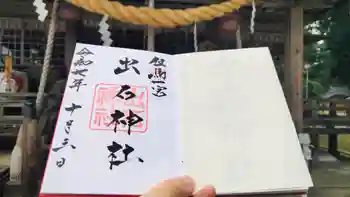 但馬一宮
出石神社
令和七年十月六日